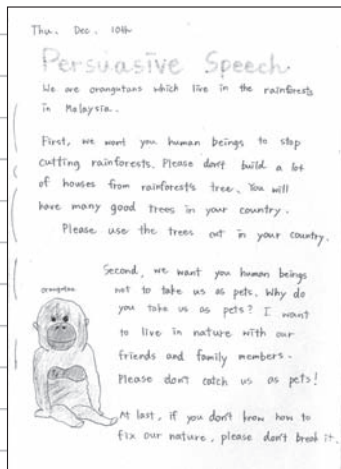 Thu. Dec. 10th
Persuasive Speech
We are orangutans which live in the rainforests
in Malaysia.
First, we want you human beings to stop
cutting rainforests. Please don't build a lot
of houses from rainforests tree. You will
have many good trees in your country.
Please use the trees cut in your country.
Second, we want you human beings
not to take us as pets. Why do
you take us as pets? I want
to live in nature with our
friends and family members.
Please don't catch us as pets!
orangutan
At last, if you don't know how to
fix our nature, please don't break it.